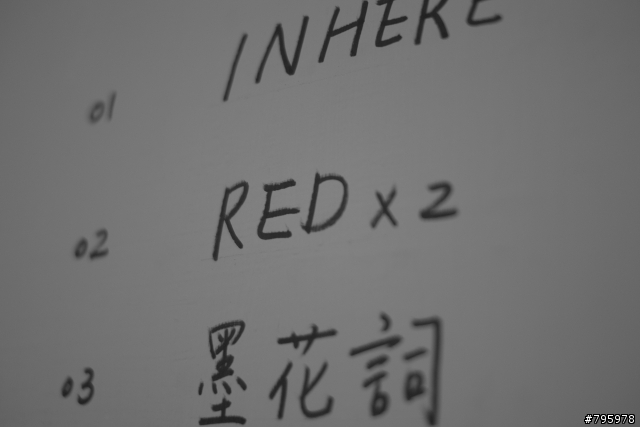 01 INHERE
02 RED x 2
03 墨花詞
#795978